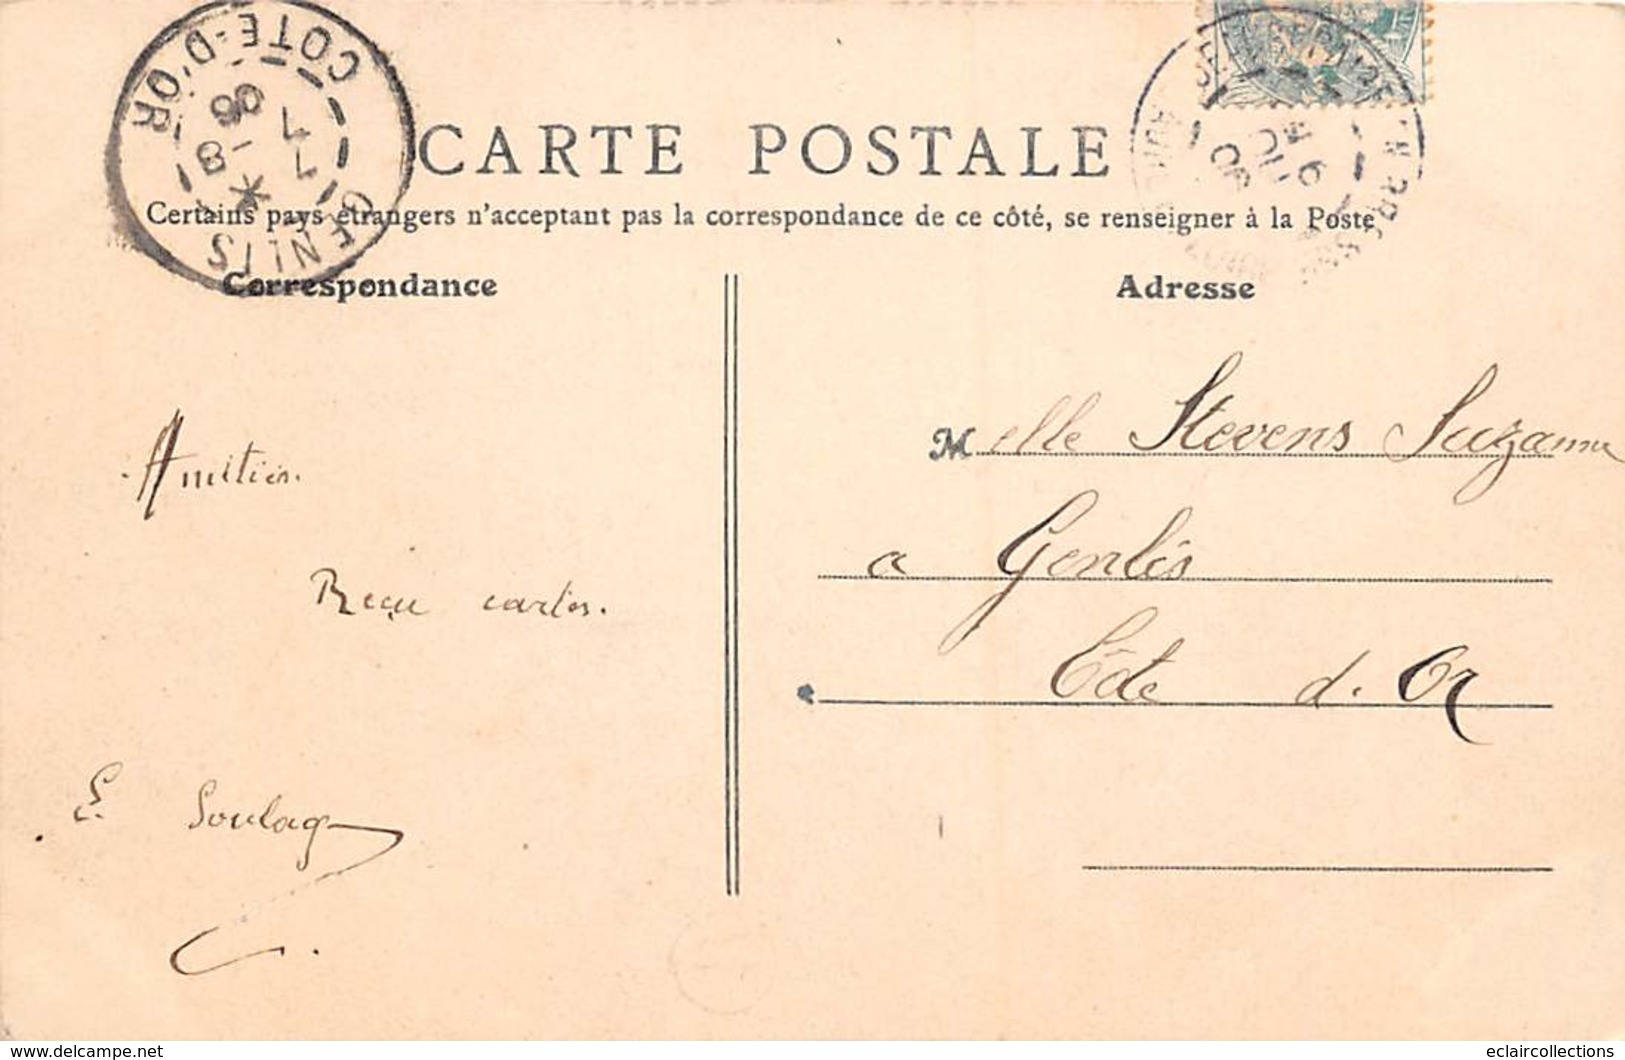 COTE-D'OR
GENLIS
7 -8
7
06
CARTE POSTALE
Certains pays étrangers n'acceptant pas la correspondance de ce côté, se renseigner à la Poste
Correspondance
Adresse
Amitiés.
Reçu cartes.
E. Soulag
Melle Stevens Suzanne
a Genlis
Côte d'Or
www.delcampe.net
eclaircollections